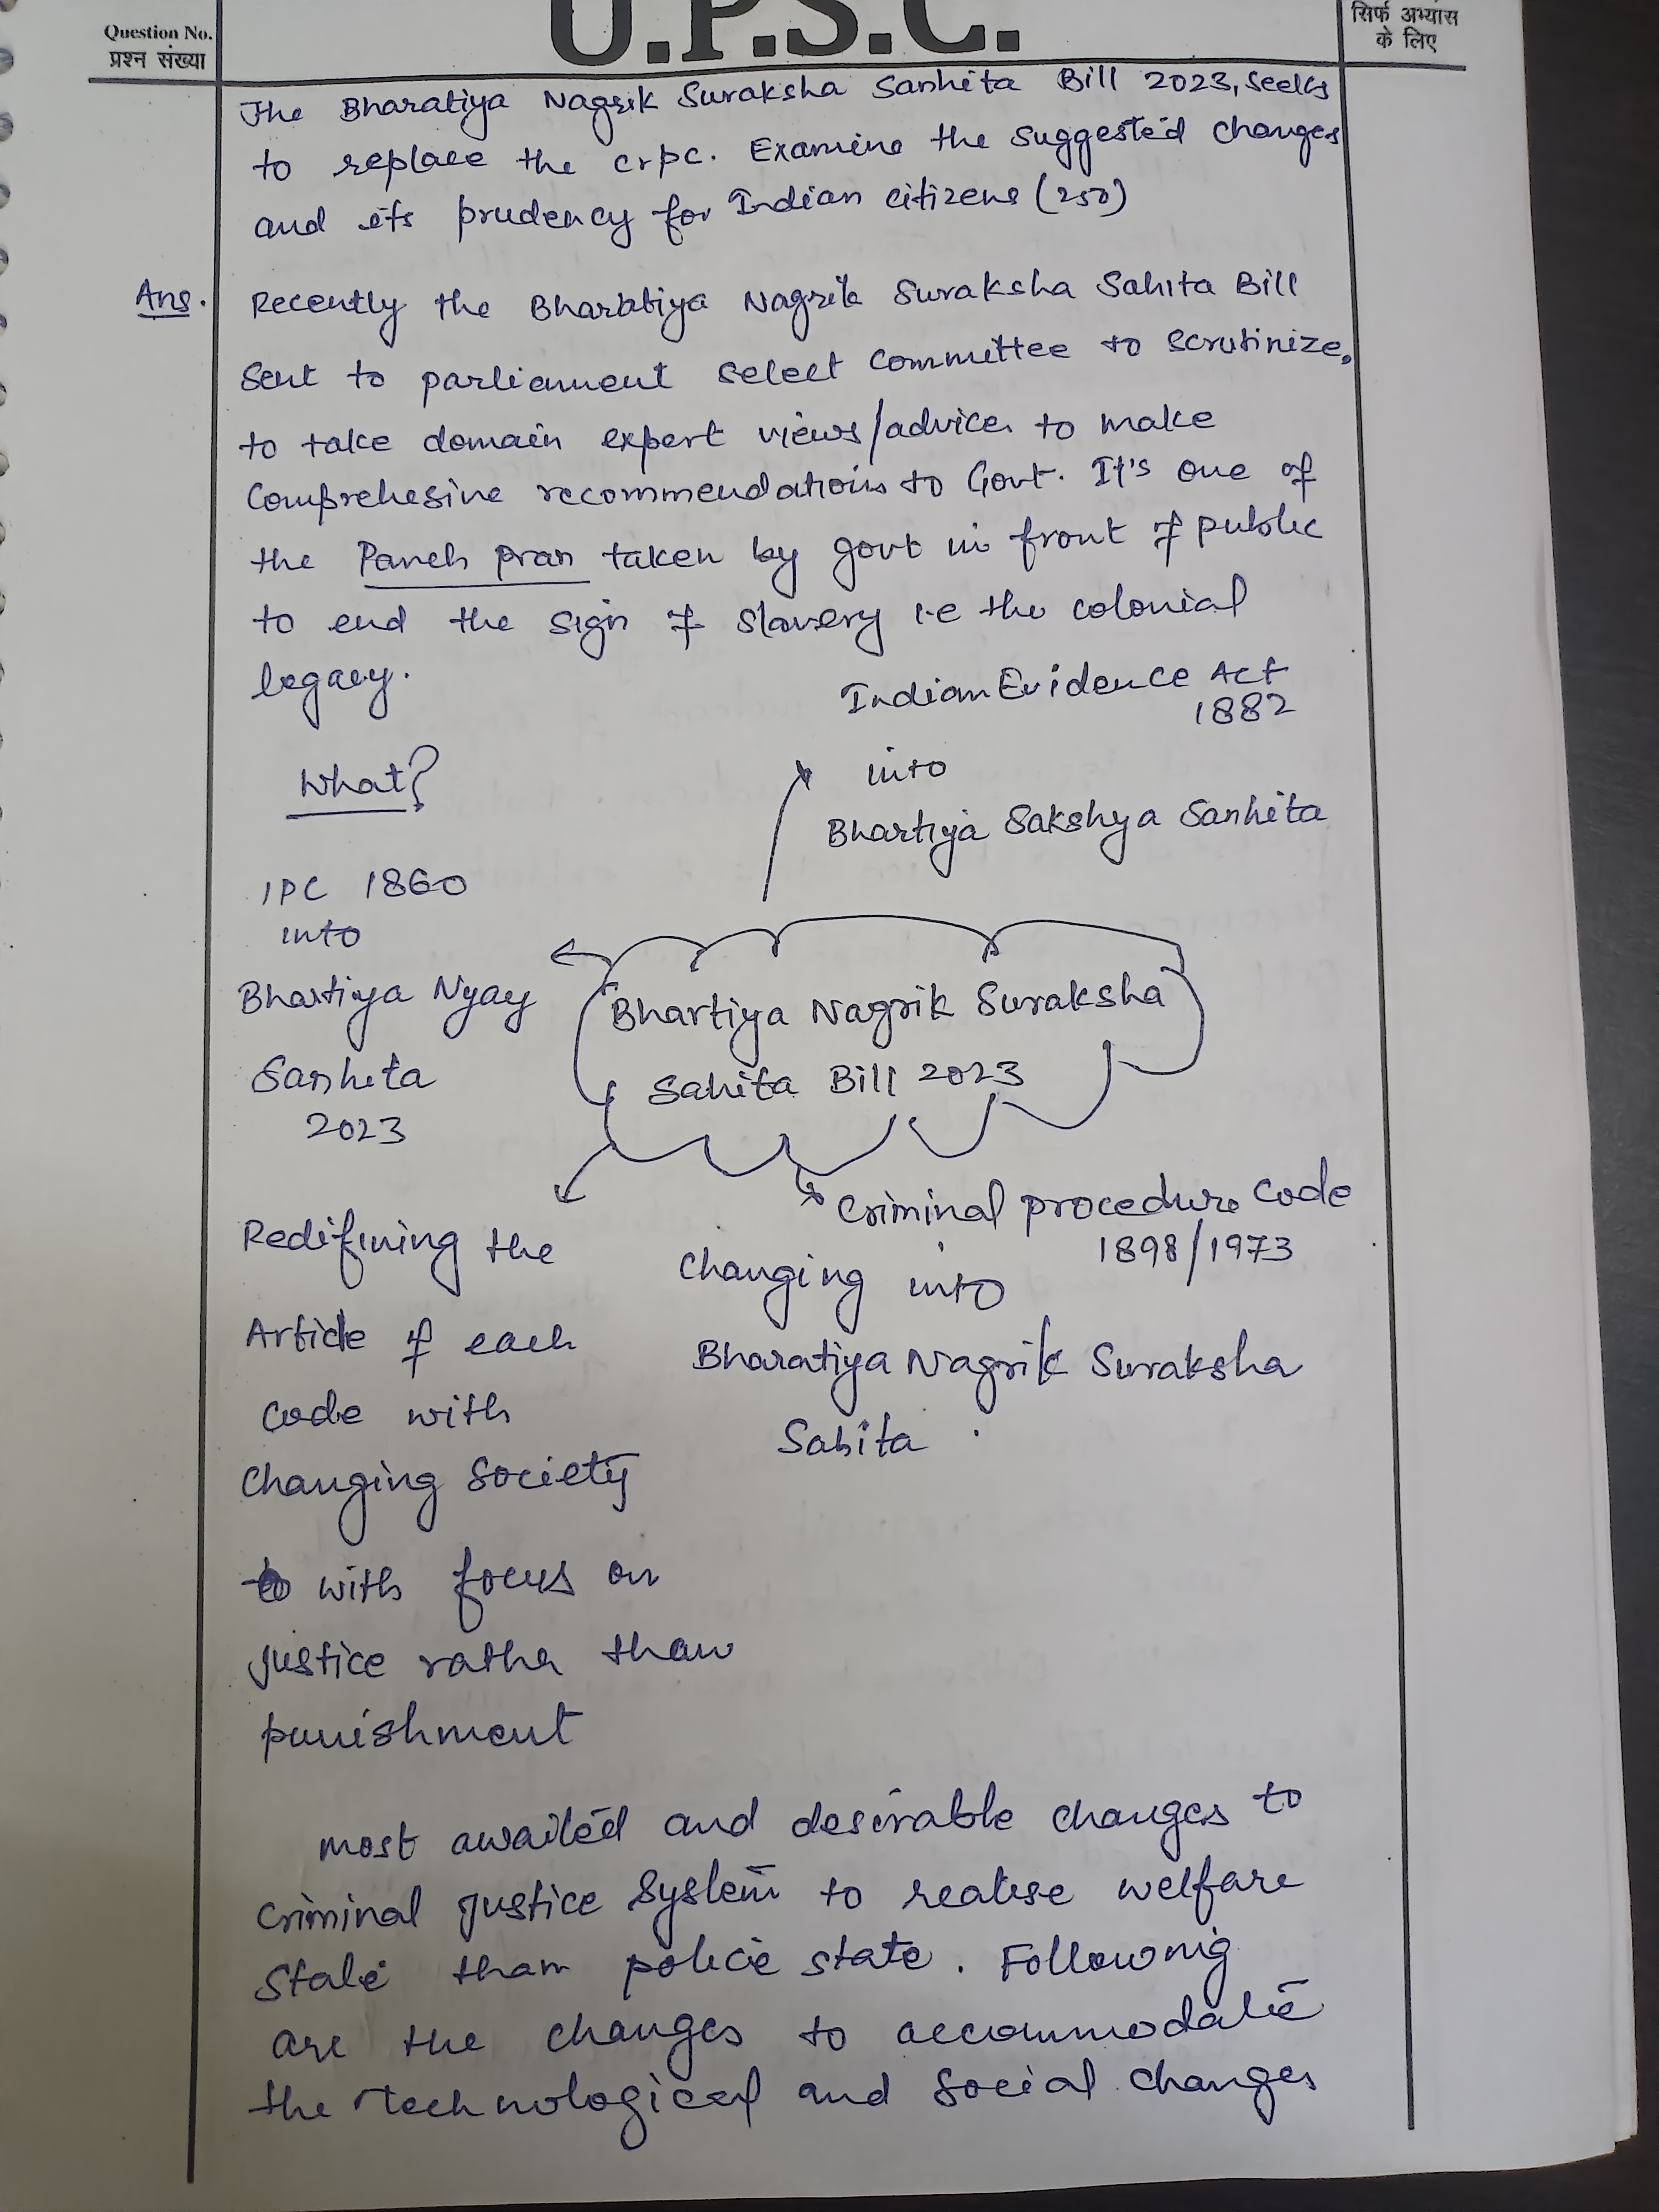 Question No.
प्रश्न संख्या
U.P.S.C.
सिर्फ अभ्यास
के लिए
The Bharatiya Nagrik Suraksha Sanhita Bill 2023, seeks
to replace the crpc. Examine the suggested changes
and its prudency for Indian citizens (250)
Ans.
Recently the Bharatiya Nagrik Suraksha Sahita Bill
sent to parliament select committee to scrutinize,
to take domain expert views/advice to make
comprehesive recommendations to Govt. It's one of
the Panch pran taken by govt in front of public
to end the sign of slavery i.e the colonial
legacy.
Indian Evidence Act
1882
into
Bhartiya Sakshya Sanhita
What?
IPC 1860
into
Bhartiya Nyay
Sanhita
2023
Bhartiya Nagrik Suraksha
Sahita Bill 2023
Criminal procedure code
1898/1973
changing into
Bharatiya Nagrik Suraksha
Sahita.
Redifining the
Article of each
code with
changing society
with focus on
justice rather than
punishment
most awaited and desirable changes to
criminal justice system to realise welfare
state than police state. Following
are the changes to accommodate
the technological and social changes